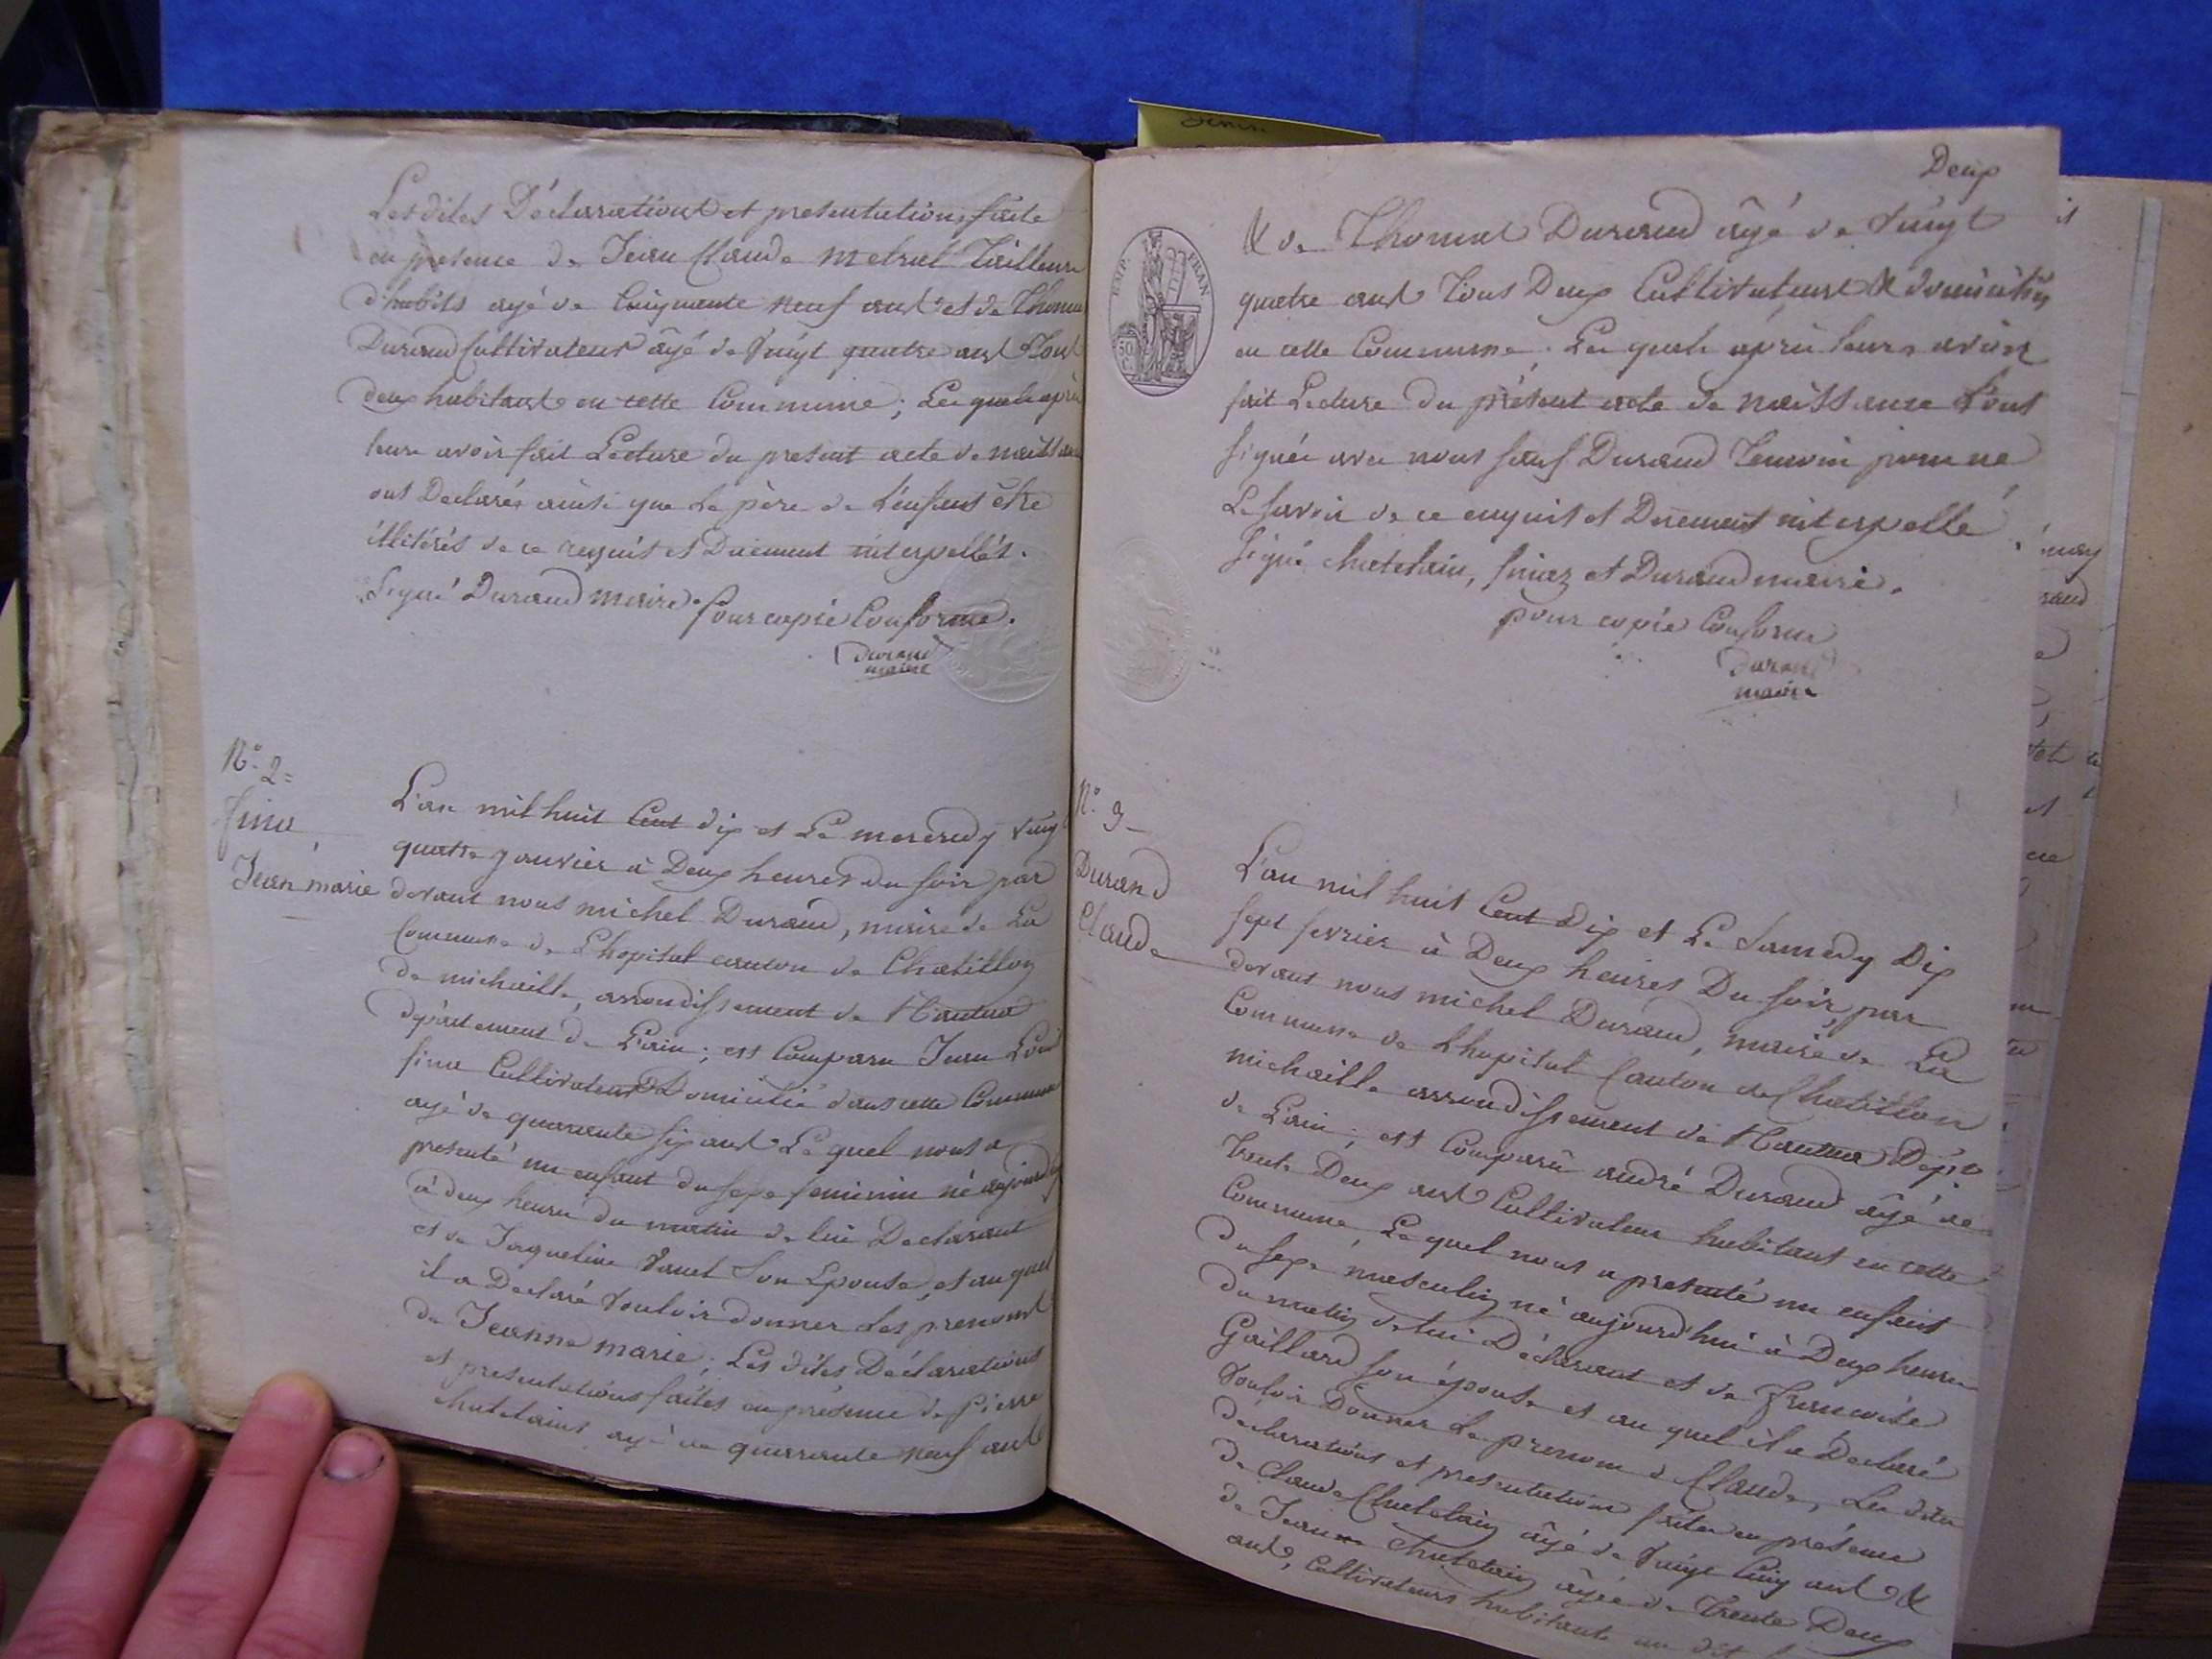 Les dites Déclarations et presentations faite
en presence de Jean Claude metral Tailleur
d'habits agé de Cinquante neuf ans et de Thomas
Durand Cultivateur âgé de Vingt quatre ans Tous
deux habitants en cette Commune ; Les quels après
leurs avoir fait Lecture du present acte de naissance
ont Declarés ainsi que Le père de L'enfant être
illitérés de ce requis et Duement interpellés.
Signé Durand maire. Pour copie Conforme.
Durand
maire
N.o 2=
Jean marie
L'an mil huit Cent dix et Le mercredy vingt
quatre janvier à Deux heures du soir par
devant nous michel Durand, maire de La
Commune de Lhopital canton de Chatillon
de michaille, arrondissement de Nantua
département de L'ain ; est Comparu Jean Louis
Cultivateur Domicilié dans cette Commune
agé de quarante six ans Le quel nous a
presenté un enfant du sexe feminin né aujourd'huy
à deux heures du matin de lui Declarant
et de Jaqueline Son Epouse, et au quel
il a Declaré Vouloir donner Les prenoms
de Jeanne marie ; Les dites Déclarations
et presentations faites en présence de Pierre
chatelain agé de quarante neuf ans
Deux
EMP. FRAN
50
& de Thomas Durand âgé de Vingt
quatre ans Tous Deux Cultivateurs & domiciliés
en cette Commune. Les quels après leurs avoir
fait Lecture du présent acte de naissance L'ont
signés avec nous sauf Durand Temoin pour ne
Le savoir de ce enquis et Duement interpellé
Signé chatelain, et Durand maire.
pour copie Conforme
Durand
maire
N.o 3
Durand
Claude
L'an mil huit Cent Dix et Le Samedy Dix
sept fevrier à Deux heures Du soir par
devant nous michel Durand, maire de La
Commune de Lhopital Canton de Chatillon
michaille arrondissement de Nantua Dép.t
de L'ain ; est Comparu andré Durand âgé de
trente Deux ans Cultivateur habitant en cette
Commune, Le quel nous a presenté un enfant
du sexe masculin né aujourd'hui à Deux heures
du matin de lui Déclarant et de Francoise
Gaillard son épouse et au quel il a Declaré
Vouloir Donner Le prenom de Claude, Les dites
declarations et presentations faites en présence
de claude Chatelain âgé de Vingt Cinq ans &
de Jean chatelain âgé de Trente Deux
ans, Cultivateurs habitants au dit